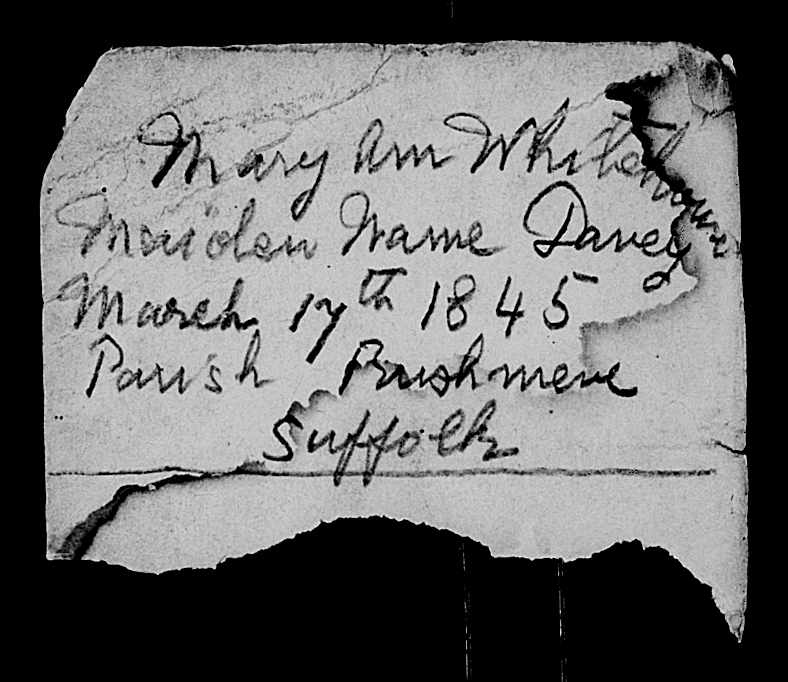 Mary Ann Whitehouse
Maiden Name Davey
March 17th 1845
Parish Rushmere
Suffolk